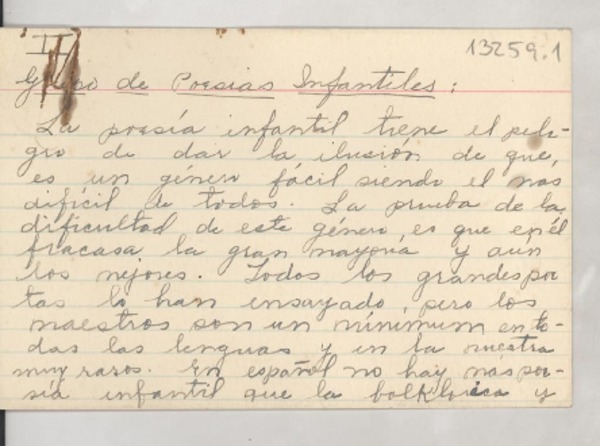 II
13259.1
Grupo de Poesias Infantiles:
La poesía infantil tiene el peli-
gro de dar la ilusión de que,
es un género fácil siendo el mas
difícil de todos. La prueba de la
dificultad de este género, es que en él
fracasa la gran mayoría y aún
los mejores. Todos los grandes poe
tas lo han ensayado, pero los
maestros son un mínimum en to-
das las lenguas y en la nuestra
muy raros. En español no hay más poe-
sía infantil que la folklorica y